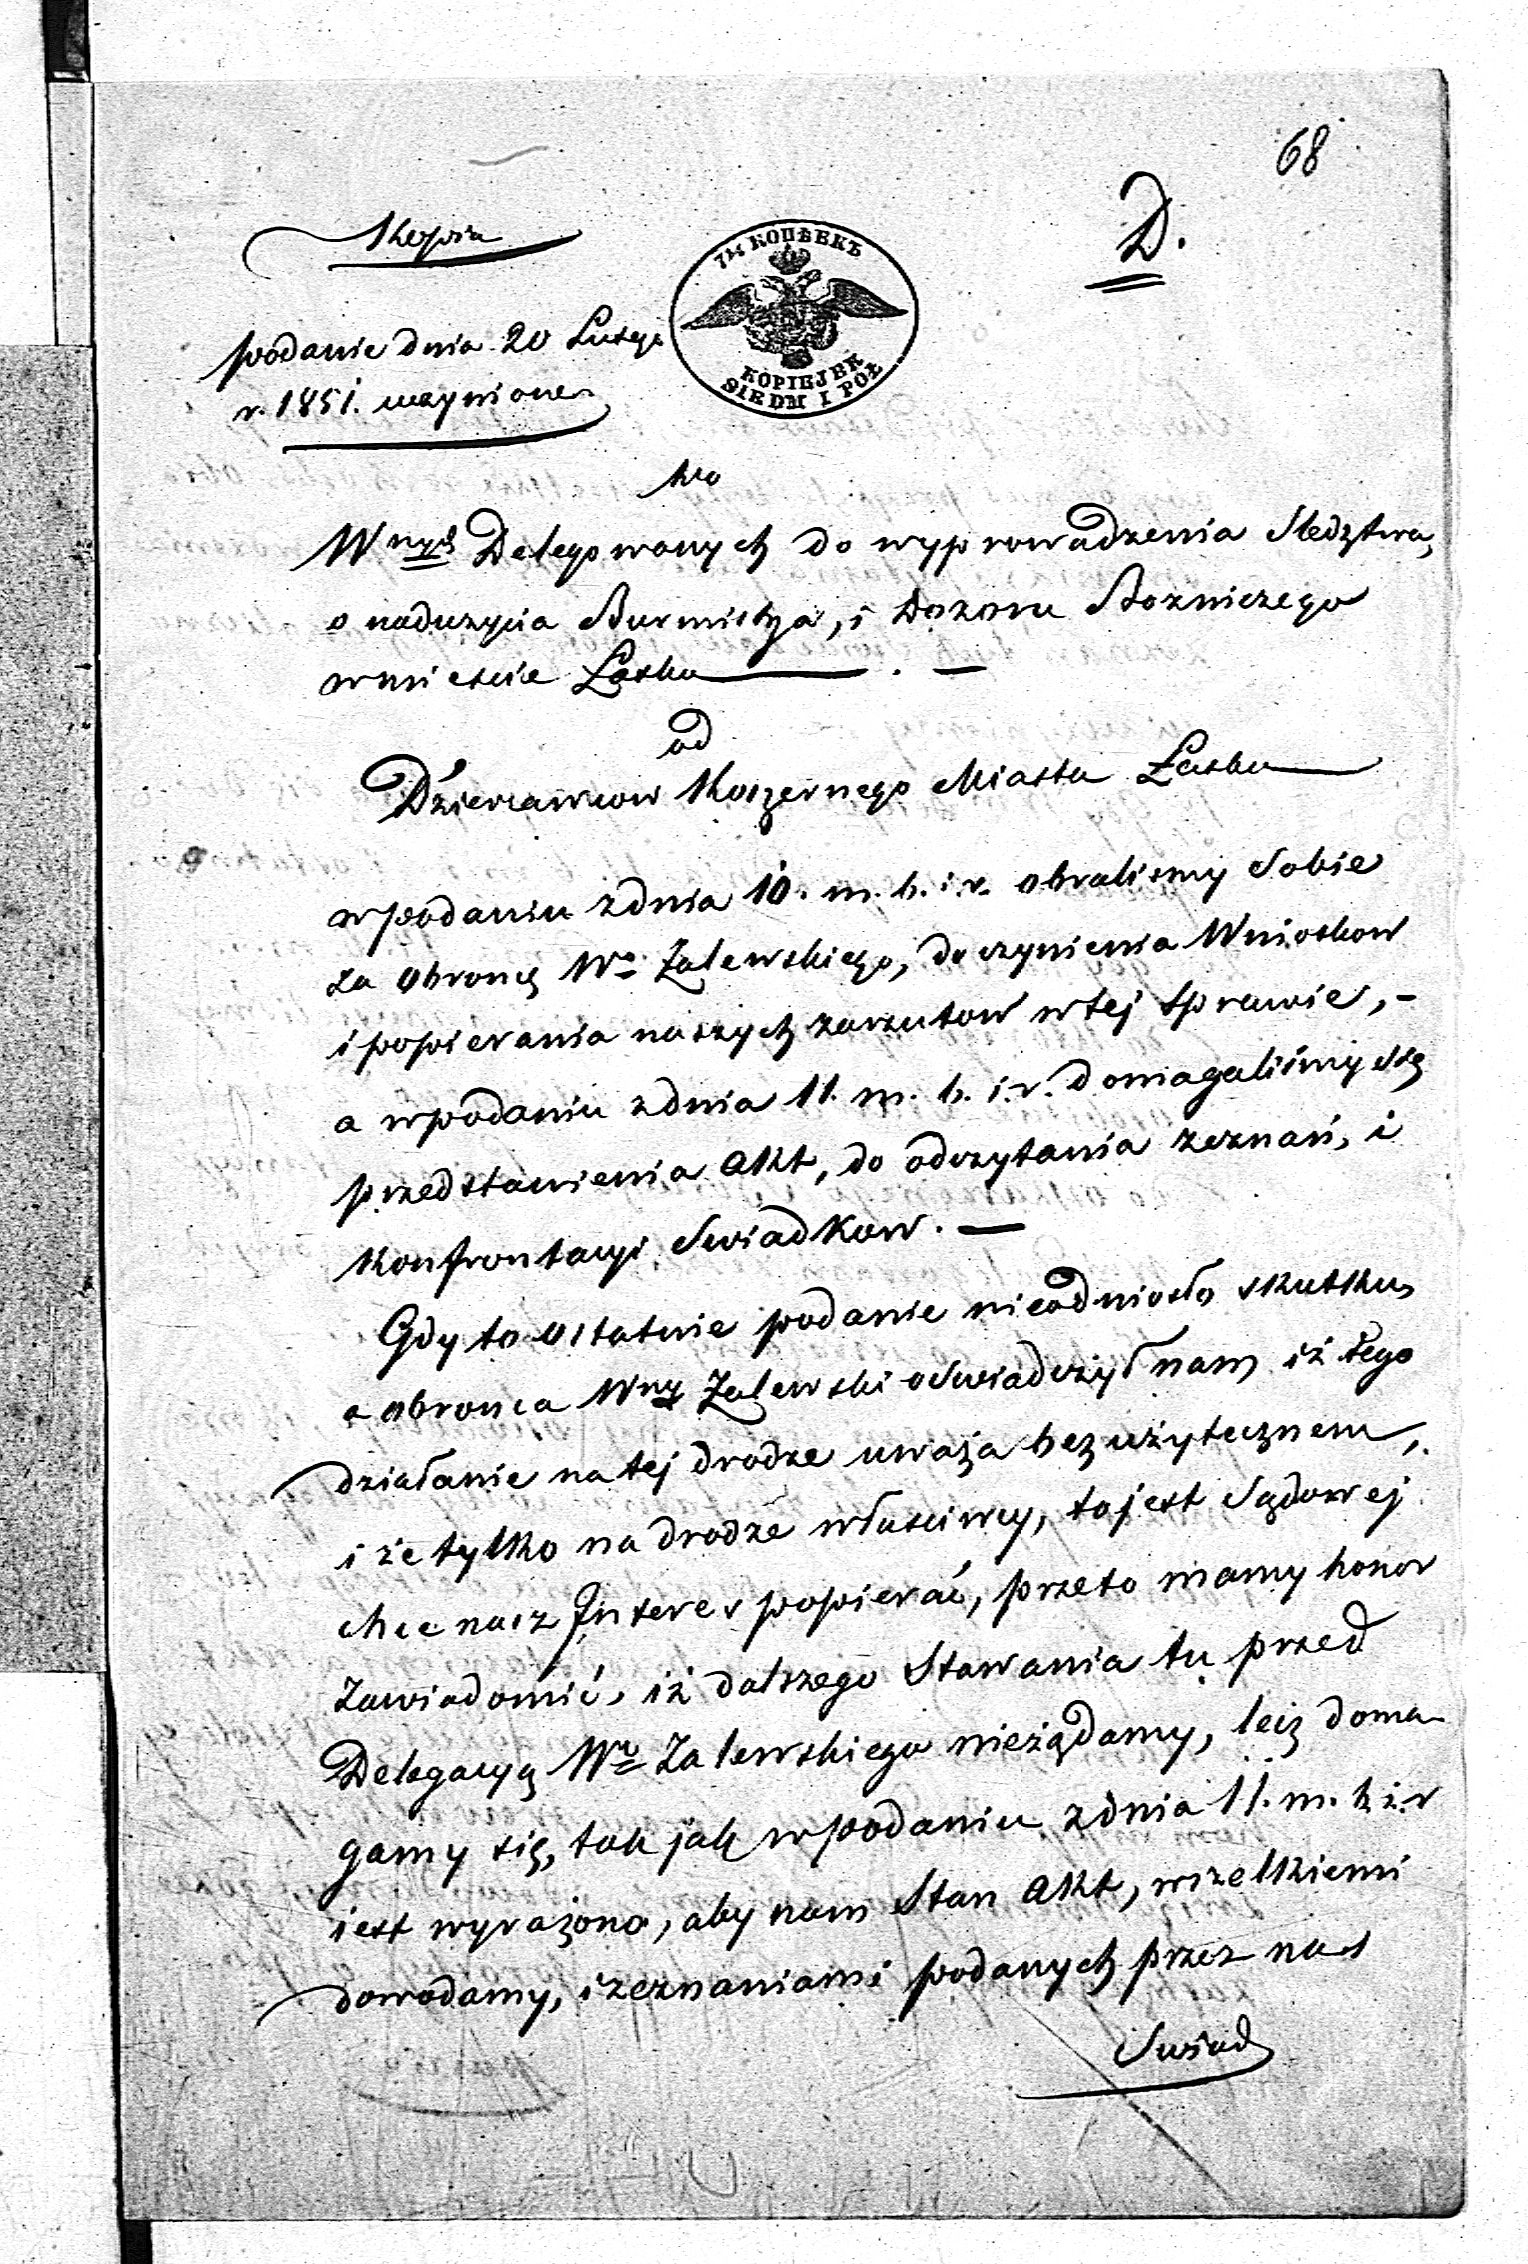 68
D.
Kopia
7½ КОПѢЕКЪ
KOPIEJEK
SIEDM I PÓŁ
podanie dnia 20 Lutego
r. 1851. uczynione
Do
Wnych Delegowanych do wyprowadzenia Sledztwa,
o naduzycia Burmistrza, i Dozoru Bożniczego
w miescie Łasku — . —
od
Dzierzawcow Koszernego Miasta Łasku —
w podaniu z dnia 10. m. b. i r. obralismy Sobie
za obroncę Wo Zalewskiego, do czynienia Wnioskow
i popierania naszych zarzutow w tej Sprawie, -
a w podaniu z dnia 11. m. b. i r. domagaliśmy się
przedstawienia Akt, do odczytania zeznań, i
Konfrontacyi Swiadkow. —
Gdy to ostatnie podanie nieodniosło skutku,
a obronca Wny Zalewski oswiadczył nam iż tego
działanie na tej drodze uważa bezużytecznem,
i że tylko na drodze własciwey, to jest Sądowej
chce nasz Interes popierać, przeto mamy honor
Zawiadomić, iż dalszego Stawania tu przed
Delegacyą Wo Zalewskiego nieżądamy, lecz doma-
gamy się, tak jak w podaniu z dnia 11. m. b. i. r
iest wyrażono, aby nam Stan Akt, wszelkiemi
dowodamy, i zeznaniami podanych przez nas
Swiad